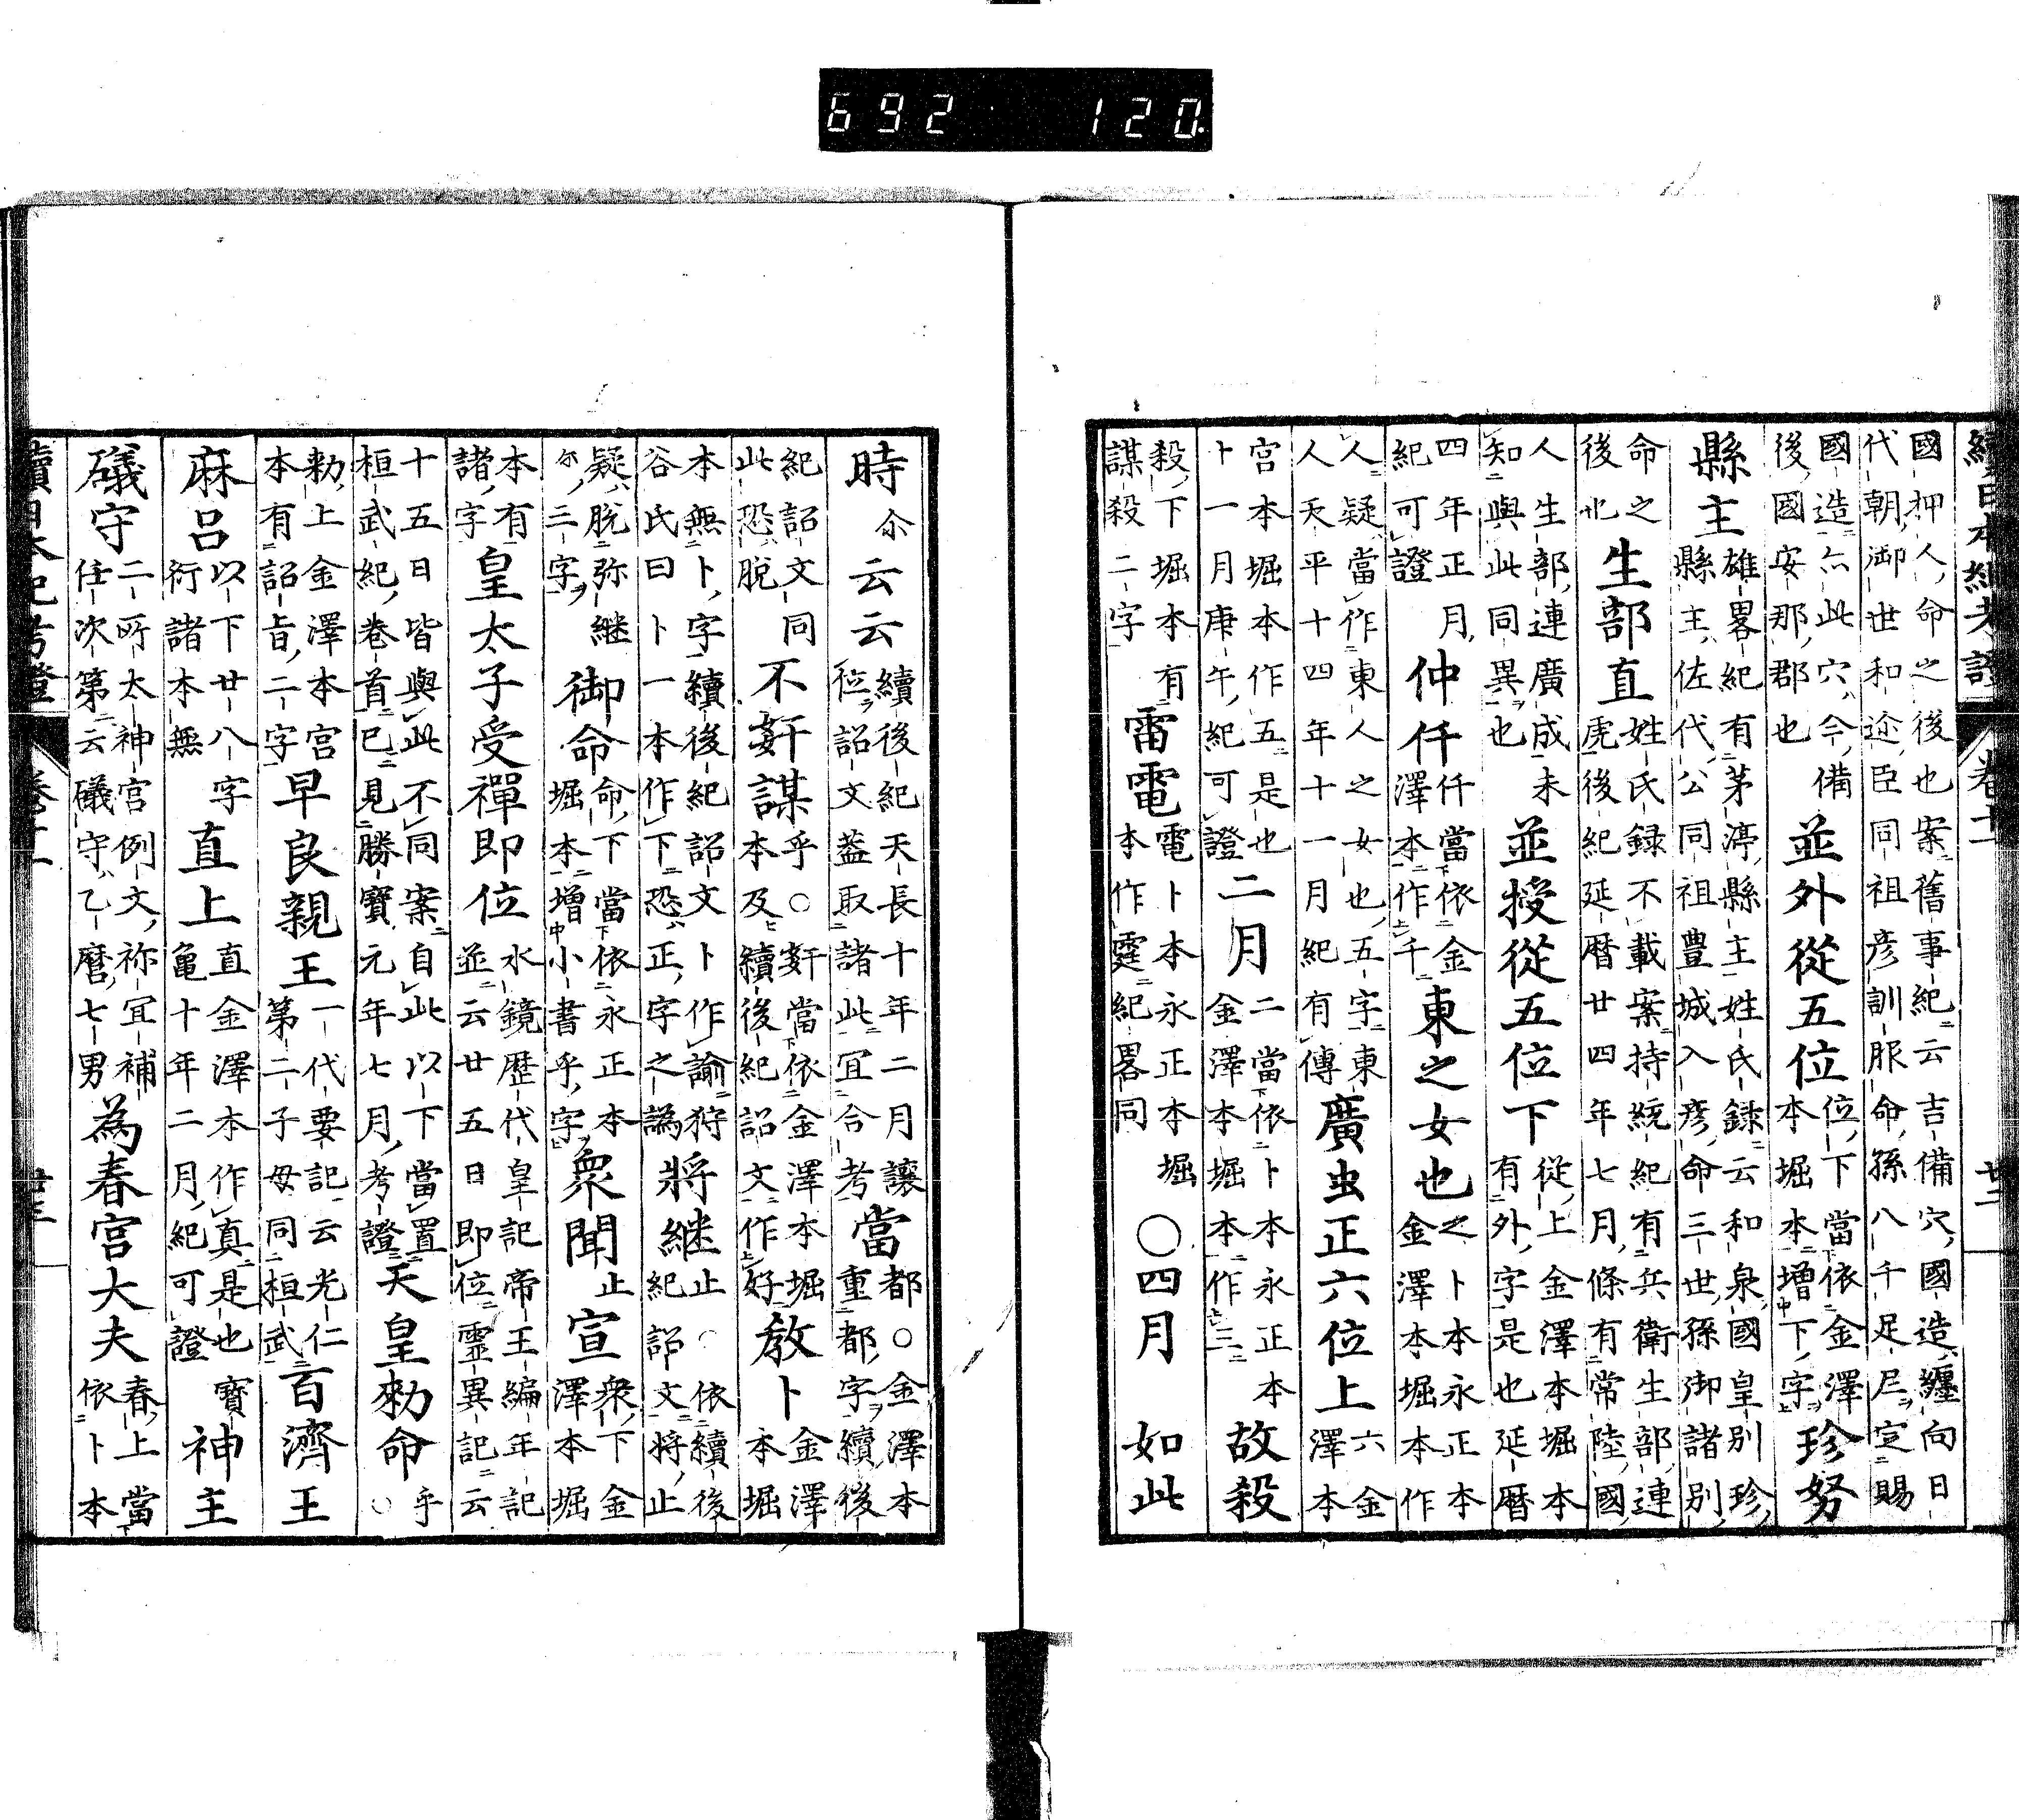 續日本紀考證 卷十一 廿二
國押人命之後也案舊事紀云吉備穴國造纏向日
代朝御世和迩臣同祖彥訓服命孫八千足尼定賜
國造六此穴今備
後國安那郡也
並外從五位
位下當依金澤
本堀本增下字
珍努
縣主
雄畧紀有茅渟縣主姓氏録云和泉國皇別珍
縣主佐代公同祖豐城入彥命三世孫御諸別
命之
後也
生部直
姓氏録不載案持統紀有兵衛生部連
虎後紀延暦廿四年七月條有常陸國
人生部連廣成未
知與此同異也
並授從五位下
從上金澤本堀本
有外字是也延暦
四年正月
紀可證
仲仟
仟當依金
澤本作千
東之女也
之卜本永正本
金澤本堀本作
人疑當作東人之女也五字東
人天平十四年十一月紀有傳
廣虫正六位上
六金
澤本
宮本堀本作五是也
十一月庚午紀可證
二月
二當依卜本永正本
金澤本堀本作三
故殺
殺下堀本有
謀殺二字
雷電
電卜本永正本堀
本作霆紀畧同
○四月 如此
時尒云云
續後紀天長十年二月讓
位詔文蓋取諸此宜合考
當
都○金澤本
重都字續後
紀詔文同
此恐脫
不姧謀
乎○姧當依金澤本堀
本及續後紀詔文作好
教卜
金澤
本堀
本無卜字續後紀詔文卜作諭狩
谷氏曰卜一本作下恐正字之譌
將継
止○依續後
紀詔文將止
疑脫弥継
尒三字
御命
命下當依永正本
堀本增小書乎字
衆聞止宣
衆下金
澤本堀
本有
諸字
皇太子受禪即位
水鏡歷代皇記帝王編年記
並云廿五日即位靈異記云
十五日皆與此不同案自此以下當置
桓武紀卷首已見勝寶元年七月考證
天皇勅命
乎○
勅上金澤本宮
本有詔旨二字
早良親王
一代要記云光仁
第二子母同桓武
百濟王
麻呂
以下廿八字
衍諸本無
直上
直金澤本作真是也寶
龜十年二月紀可證
神主
礒守
二所太神宮例文祢宜補
任次第云礒守乙麿七男
為春宮大夫
春上當
依卜本
續日本紀考證 卷十一 廿三
692 120